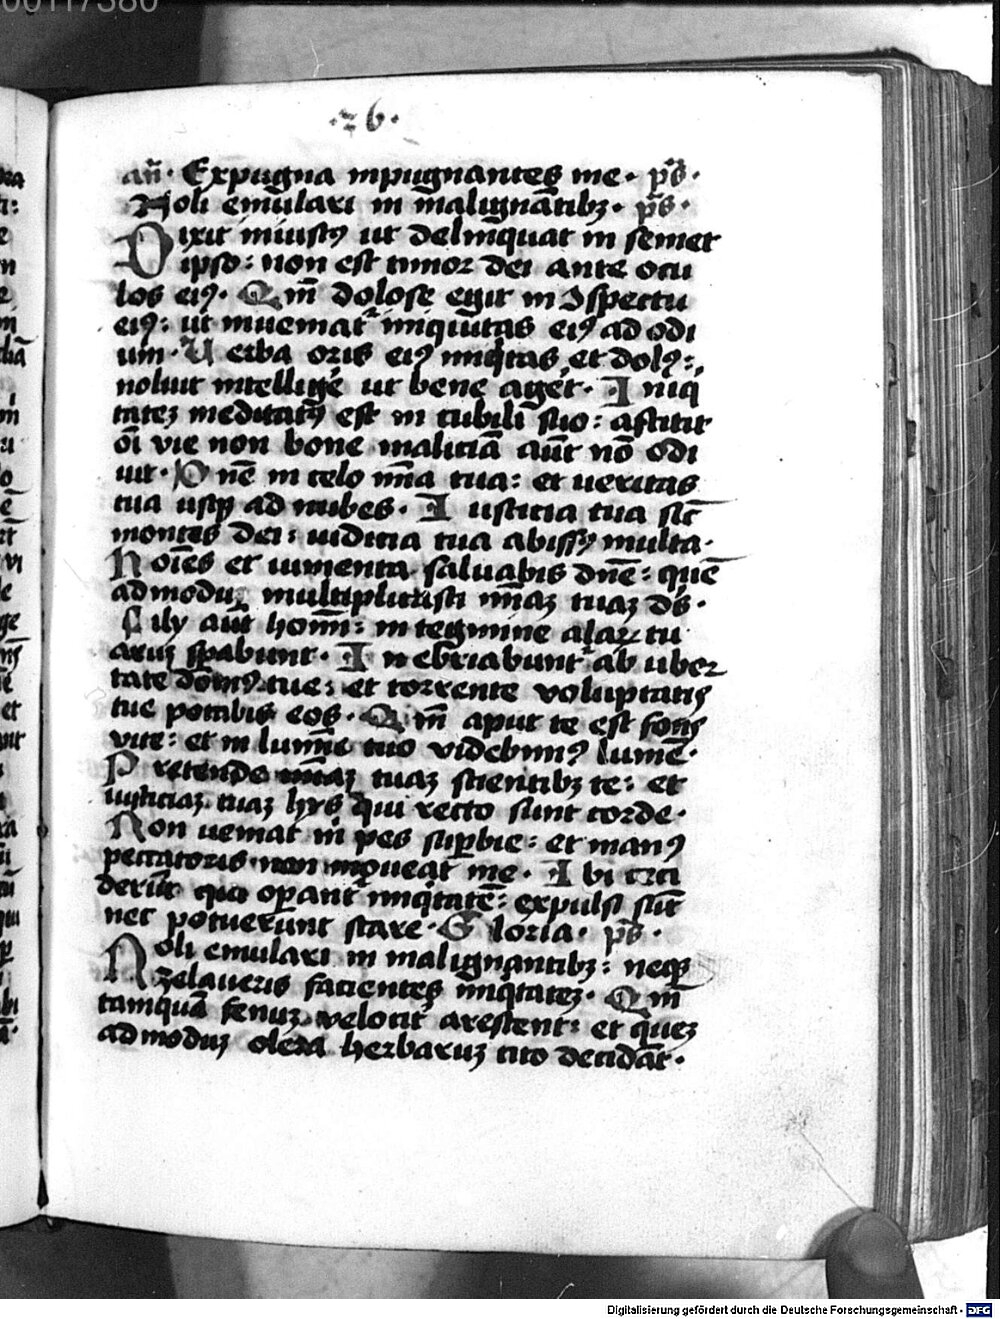 00117580
·26·
an̄· Expugna inpugnantes me· p̄s·
Noli emulari in malignātibꝫ· p̄s·
Dixit iniustꝯ ut delinquat in semet
ipso: non est timor dei ante ocu
los eiꝯ· Qm̄ dolose egit in ɔspectu
eiꝯ: ut inueniat᷑ iniquitas eiꝯ ad odi
um· Uerba oris eiꝯ iniq̇tas et dolꝯ:
noluit intellige᷑ ut bene age᷑t· Iniq
tateꝫ meditatꝯ est in cubili suo: astitit
oı̄ vie non bone maliciā aūt nō odi
uit· Dn̄e in celo mı̄a tua: et ueritas
tua usqꝫ ad nubes· Iusticia tua sic̄
montes dei: iudicia tua abissꝯ multa·
Hoīes et iumenta saluabis dn̄e: quē
admoduꝫ multiplicasti mı̄aꝫ tuaꝫ d̄s·
Filӱ aūt hoīm: in tegmine alaꝝ tu
aruꝫ sꝑabunt· Inebriabunt᷑ ab uber
tate domꝯ tue: et torrente voluptatis
tue potabis eos· Qm̄ aput te est fons
vite: et in lumı̄e tuo videbimꝯ lumē·
Pretende mı̄aꝫ tuaꝫ scientibꝫ te: et
iusticiaꝫ tuaꝫ hӱs qui recto sunt corde·
Non ueniat m̄ pes suꝑbie: et manꝯ
peccatoris non moueat me· Ibi ceci
derūt qui oꝑant᷑ iniq̇tatē: expulsi sūt
nec potuerunt stare· Gloria· p̄s·
Noli emulari in malignantibꝫ: neqꝫ
zelaueris facientes iniq̇tateꝫ· Qm̄
tamquā fenuꝫ velocit᷑ arescent: et queꝫ
admoduꝫ olera herbaruꝫ cito decidāt·
Digitalisierung gefördert durch die Deutsche Forschungsgemeinschaft - DFG